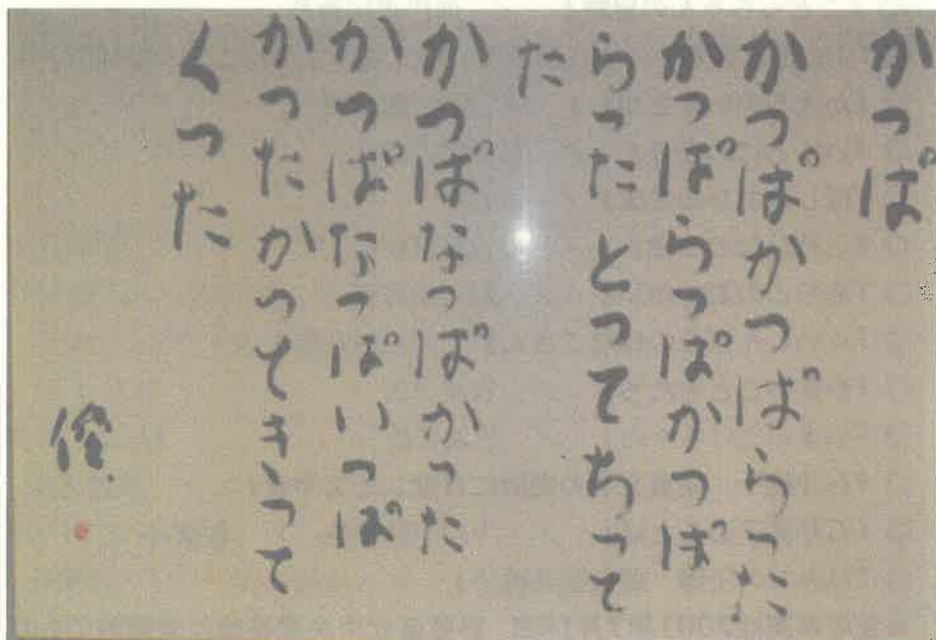 かっぱ
かっぱかっぱらった
かっぱらっぱかっぱ
らったとってちって
た
かっぱなっぱかった
かっぱなっぱいっぱ
かったかってきって
くった
俊